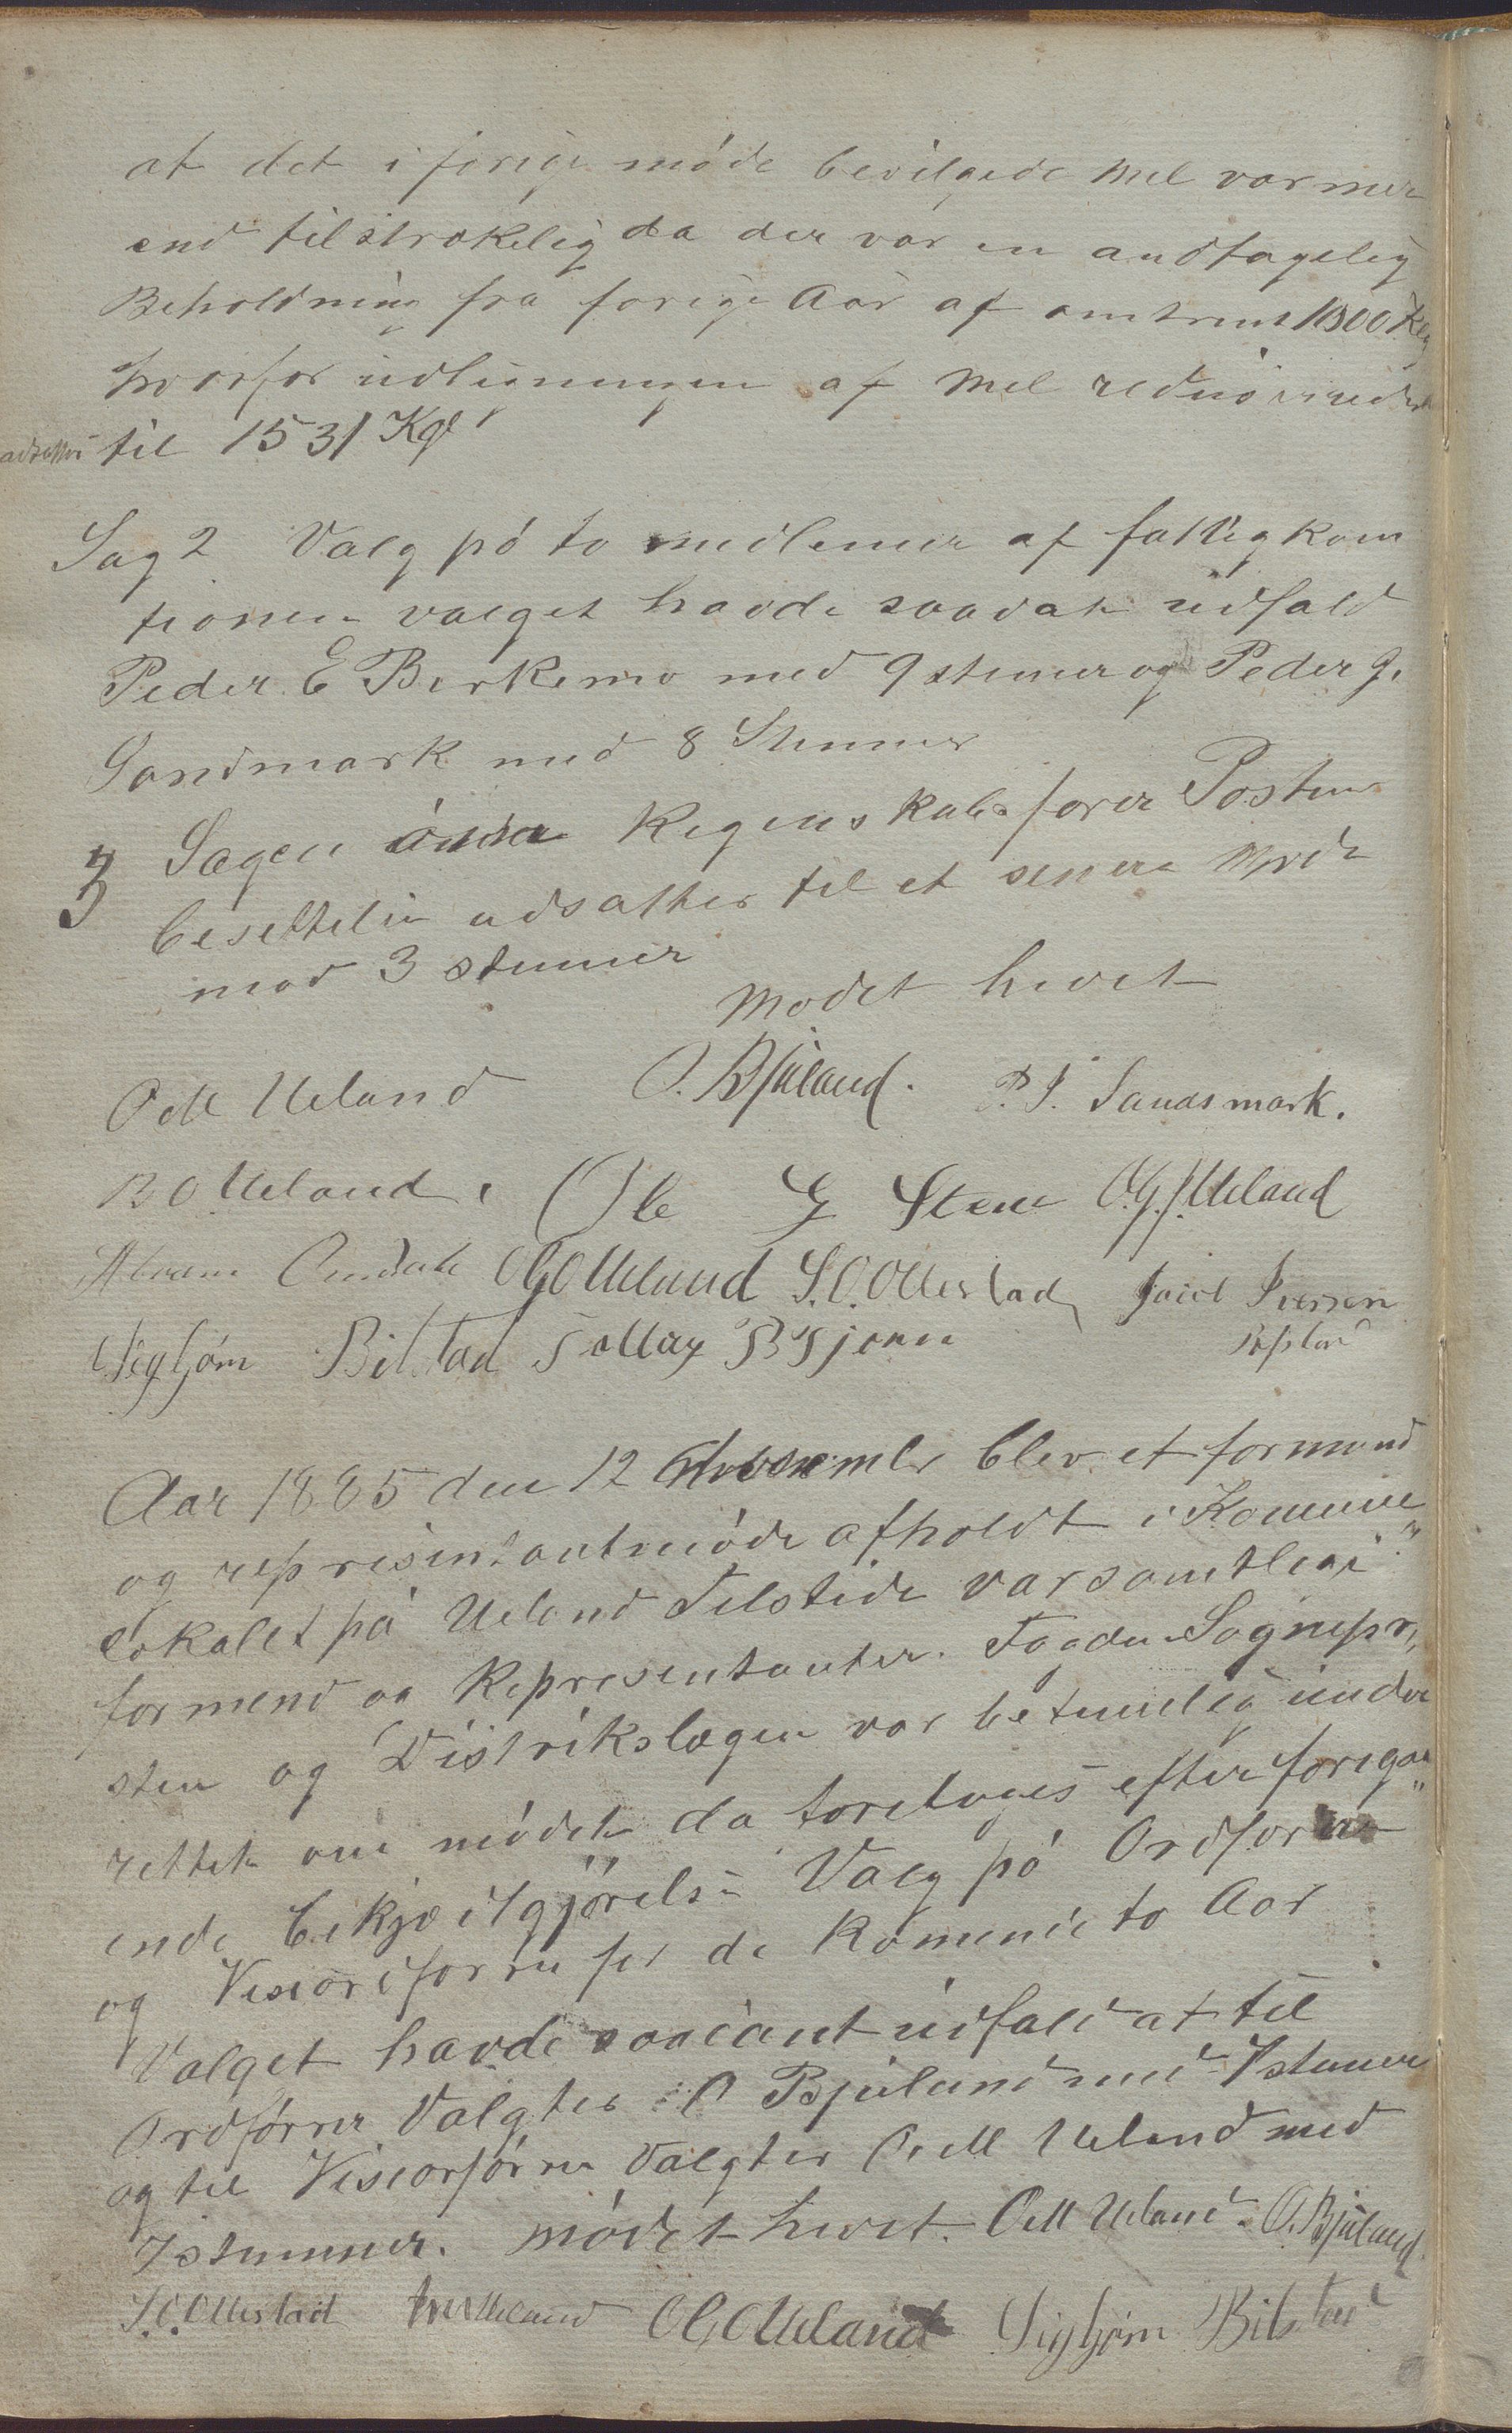 at det i forige møde bevilgede Mel var mer
end tilstrækelig da der var en andtagelig
Beholdning fra forige Aar af omtrent 1000 Kg
hvorfor udligningen af Mel redusiseredes
til 1531 Kgr
Sag 2 Valg på to medlemer af fattigkom
tionen valget havde saadat udfald
Peder E Birkemo med 9 stemer og Peder J.
Sandmark med 8 Stemmer
3 Sagen RegenskabsførerPostens
besettelse udsattes til et senere Møde
mod 3 stemmer
Modet hevet
O M Ueland O. Bjuland. P. J. Sandsmark.
B O Ueland. Ole G Stene O.G.J.Ueland
Abram Omdal OGOUeland S.O.Ollestad Jacob Iversen
Sigbjørn Bilstad Tollag B Tjørn
Aar 1885 den 12 desember blev et formand
og represintantmøde afholdt i Komune"
lokalet på Ueland Tilstede var samtlige
formend og Representanter. Fogden Sognepr,
sten og Distrikslægen var betimelig under
rettet om mødet da foretoges efter foregaa"
ende bekjentgjørelse Valg på Ordfører
og Viseordfører for de komende to Aar
Valget havde saadant udfald at til
Ordfører Valgtes O Bjuland med 7 stemer
og til Viseorfører Valgtes O. M Ueland med
7 stemmer. mødet hevet. O M Ueland. O. Bjuland.
S.O.Ollestad OGOUeland Sigbjørn Bilstad